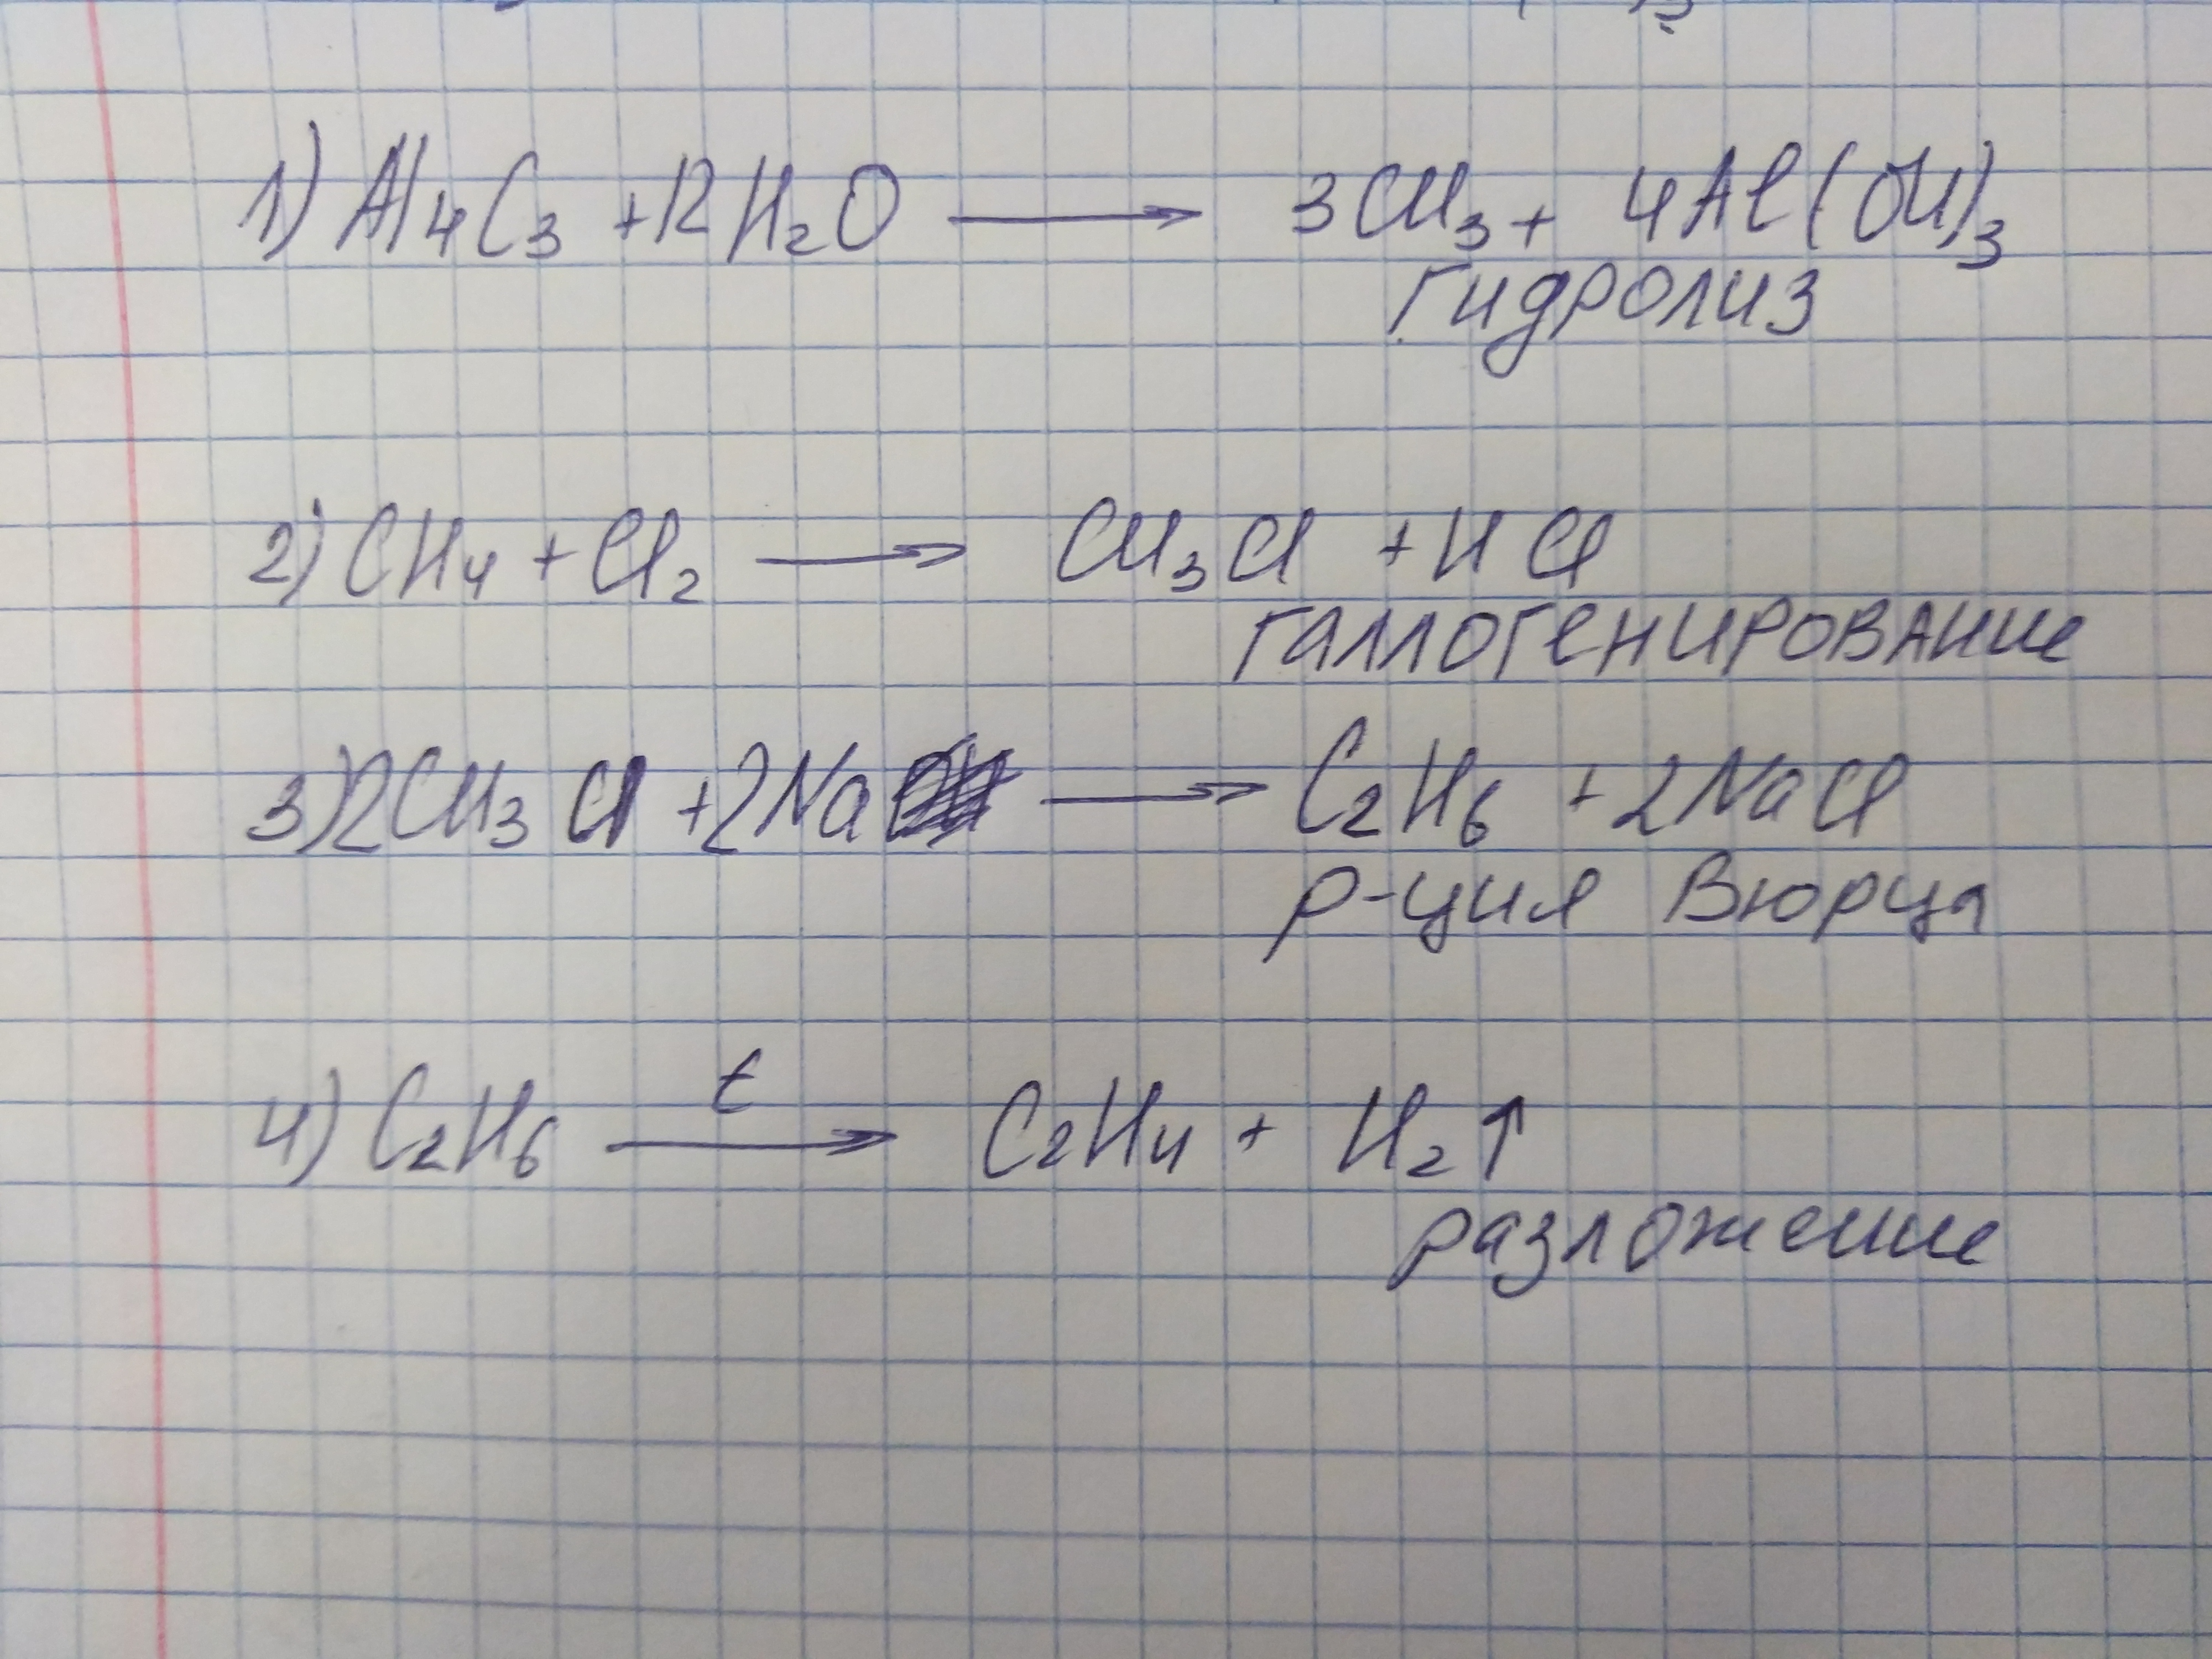 1) Al₄C₃ + 12 H₂O ⟶ 3CH₃ + 4Al(OH)₃
гидролиз
2) CH₄ + Cl₂ ⟶ CH₃Cl + HCl
галлогенирование
3) 2CH₃Cl + 2Na ⟶ C₂H₆ + 2NaCl
р-ция Вюрца
t
4) C₂H₆ ⟶ C₂H₄ + H₂↑
разложение